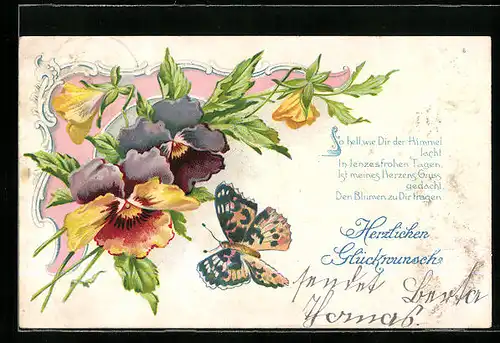 So hell, wie Dir der Himmel
lacht
In lenzesfrohen Tagen,
Ist meines Herzens Gruss
gedacht
Den Blumen zu Dir tragen
Herzlichen
Glückwunsch
sendet Berta
Thomas.